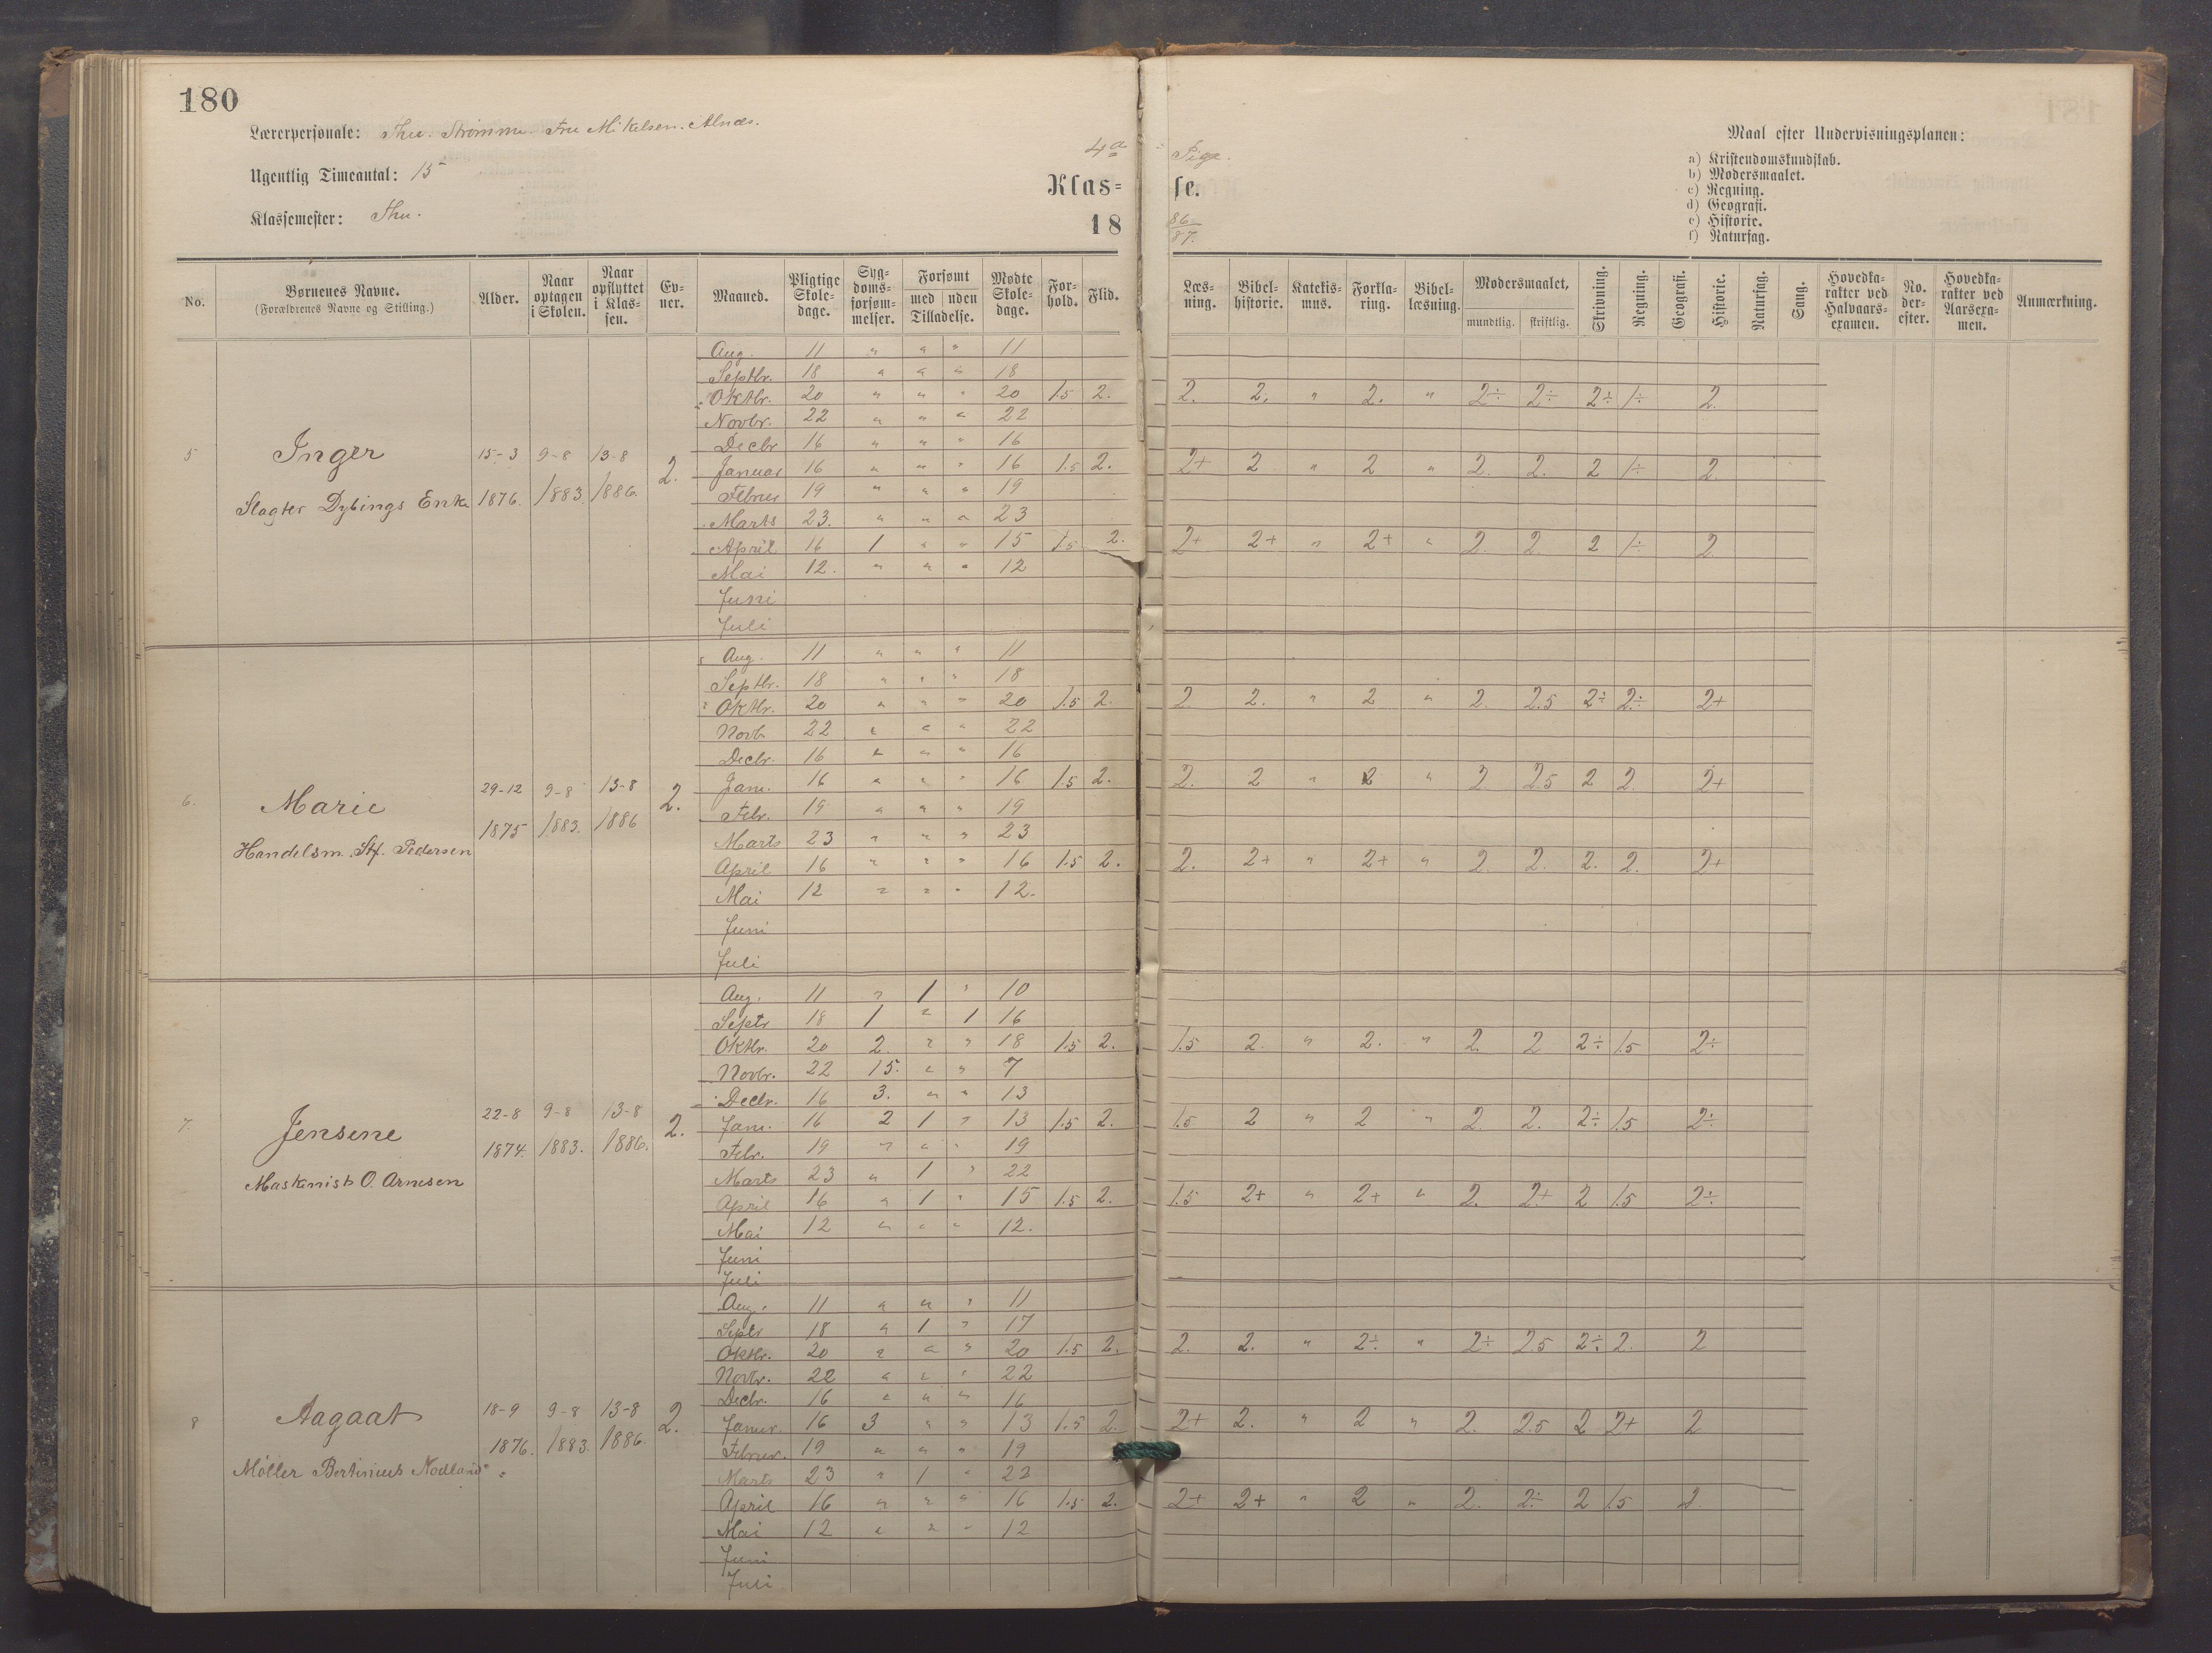 180
Lærerpersonale: Thu. Strømme. Fru Mikelsen. Alnæs.
Ugentlig Timeantal: 15
Klassemester: Thu.
4a Pige.
Klas= se.
18 86/87.
Maal efter Undervisningsplanen:
a) Kristendomskundskab.
b) Modersmaalet.
c) Regning.
d) Geografi.
e) Historie.
f) Naturfag.
No. | Børnenes Navne. (Forældrenes Navne og Stilling.) | Alder. | Naar optagen i Skolen. | Naar opflyttet i Klas-sen. | Ev-ner. | Maaned. | Pligtige Skole-dage. | Syg-doms-forsøm-melser. | Forsømt med | uden Tilladelse. | Mødte Skole-dage. | For-hold. | Flid. | Læs-ning. | Bibel-historie. | Katekis-mus. | Forkla-ring. | Bibel-læsning. | Modersmaalet, mundtlig. | skriftlig. | Skrivning. | Regning. | Geografi. | Historie. | Naturfag. | Sang. | Hovedka-rakter ved Halvaars-examen. | No. der-efter. | Hovedka-rakter ved Aarsexa-men. | Anmærkning.
5 Inger 15-3 1876. 9-8 1883. 13-8 1886. 2.
Slagter Dybings Enke
Aug. 11 " " " 11
Septbr. 18 " " " 18
Oktbr. 20 " " " 20 1.5 2. 2. 2. " 2. " 2÷ 2÷ 2÷ 1÷ 2.
Novbr. 22 " " " 22
Decbr 16 " " " 16
Januar 16 " " " 16 1.5 2. 2+ 2 " 2 " 2. 2. 2 1÷ 2.
Februar 19 " " " 19
Marts 23. " " " 23
April 16 1 " " 15 1.5 2. 2+ 2+ " 2+ " 2. 2. 2 1÷ 2
Mai 12. " " " 12
Juni
Juli
6. Marie 29-12 1875 9-8 1883. 13-8 1886 2.
Handelsm. Stf. Pedersen
Aug. 11 " " " 11
Septbr. 18 " " " 18
Oktbr. 20 " " " 20 1.5 2. 2 2. " 2 " 2. 2.5 2÷ 2÷ 2+
Novb. 22 " " " 22
Decbr. 16 " " " 16
Jan. 16 " " " 16 1.5 2. 2. 2 " 2 " 2. 2.5 2 2. 2+
Febr. 19 " " " 19
Marts 23 " " " 23
April 16 " " " 16 1.5 2. 2. 2+ " 2+ " 2. 2. 2. 2. 2+
Mai 12 " " " 12.
Juni
Juli
7. Jensine 22-8 1874. 9-8 1883. 13-8 1886. 2.
Maskinist O. Arnesen
Aug. 11 " 1 " 10
Septr 18 1 " 1 16
Oktbr. 20 2. " " 18 1.5 2. 1.5 2. " 2. " 2. 2 2÷ 1.5 2÷
Novbr. 22 15. " " 7
Decbr. 16 3. " " 13
Jan. 16 2 1 " 13 1.5 2. 1.5 2 " 2 " 2. 2. 2÷ 1.5 2÷
Febr. 19 " " " 19
Marts 23 " 1 " 22
April 16 " 1 " 15 1.5 2. 1.5 2+ " 2+ " 2. 2+ 2 1.5 2÷
Mai 12 " " " 12.
Juni
Juli
8 Aagaat 18-9 1876. 9-8 1883. 13-8 1886. 2.
Møller Bertinius Nodland
Aug. 11 " " " 11
Septr 18 " 1 " 17
Oktbr. 20 " " " 20 1.5 2. 2. 2. " 2÷ " 2÷ 2.5 2÷ 2. 2
Novbr. 22 " " " 22
Decbr. 16 " " " 16
Januar. 16 3 " " 13 1.5 2. 2+ 2. " 2 " 2. 2.5 2 2+ 2
Februar. 19 " " " 19
Marts 23 " 1 " 22
April 16 " " " 16 1.5 2. 2+ 2+ " 2 " 2. 2÷ 2 1.5 2.
Mai 12 " " " 12
Juni
Juli